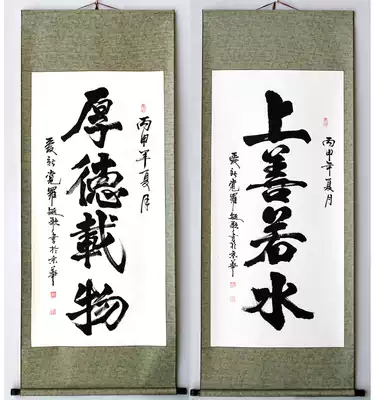 丙申年夏月
厚德載物
愛新覺羅
書於京華
丙申年夏月
上善若水
愛新覺羅
書於京華